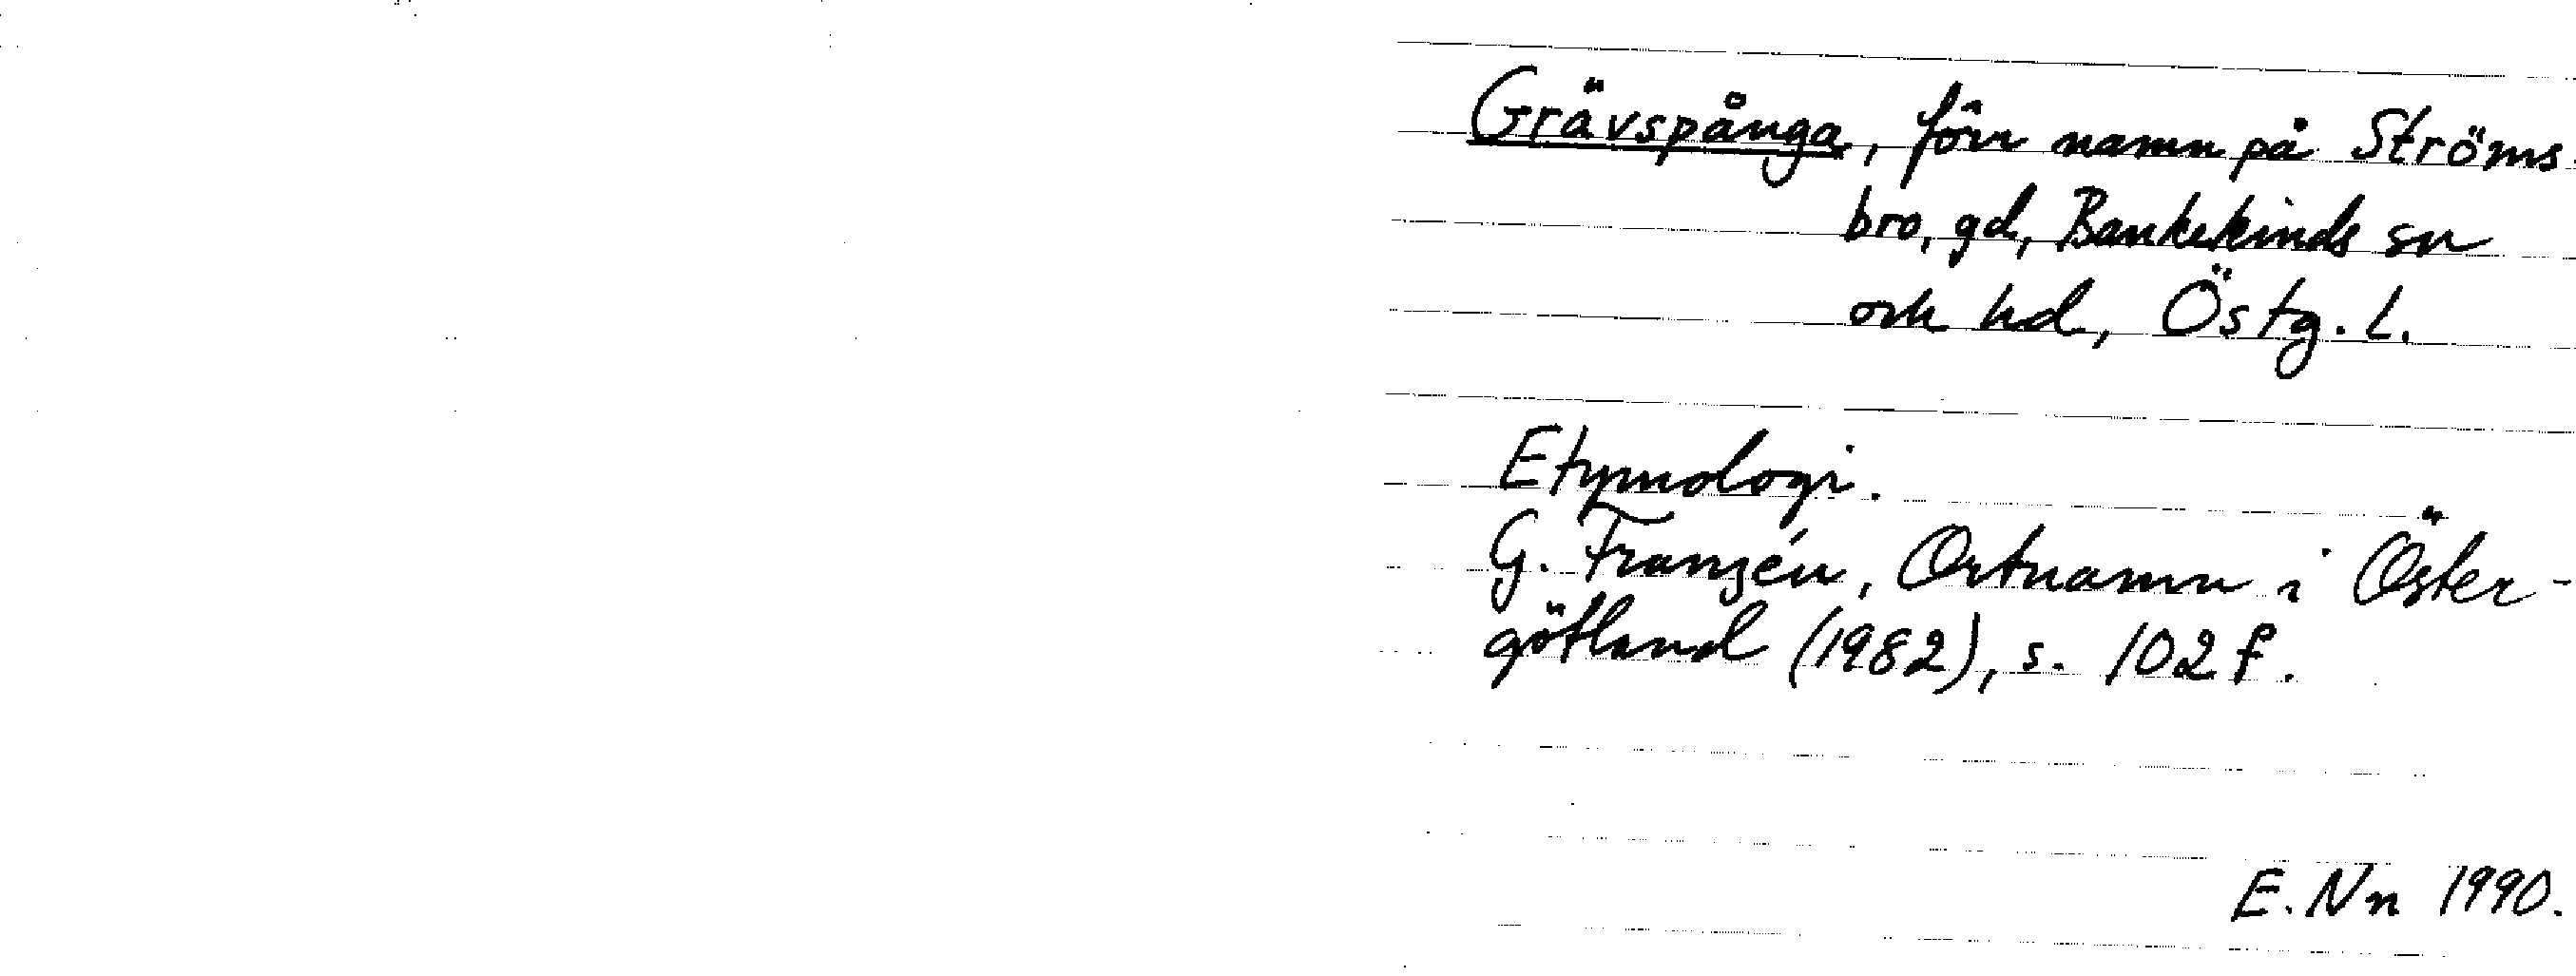 Grävspånga, förr namn på Ströms-
bro, gd, Bankekinds sn
och hd, Östg. l.
Etymologi.
G. Franzén, Ortnamn i Öster-
götland (1982), s. 102 f.
E. Nn 1990.